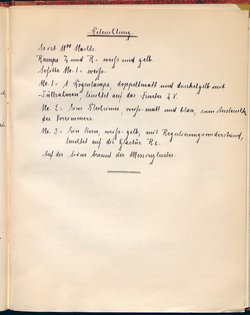 Beleuchtung.
Es ist Nacht.
Rampe I, und R. - weiss und gelb.
Sofitte No. 1. - weiss.
No. 1 - 1 Bogenlampe, doppelmatt und dunkelgelb mit
Füllrahmen, leuchtet auf das Fenster L V.
No. 2. - Ein Fluterinn, weiss-matt und blau, zum Ausleuchten
des Vorzimmers.
No. 3. - Ein Stern, weiss-gelb, mit Regulierungswiderstand,
leuchtet auf die Glastür R 2.
Auf der Szene brennt der Messingluster.